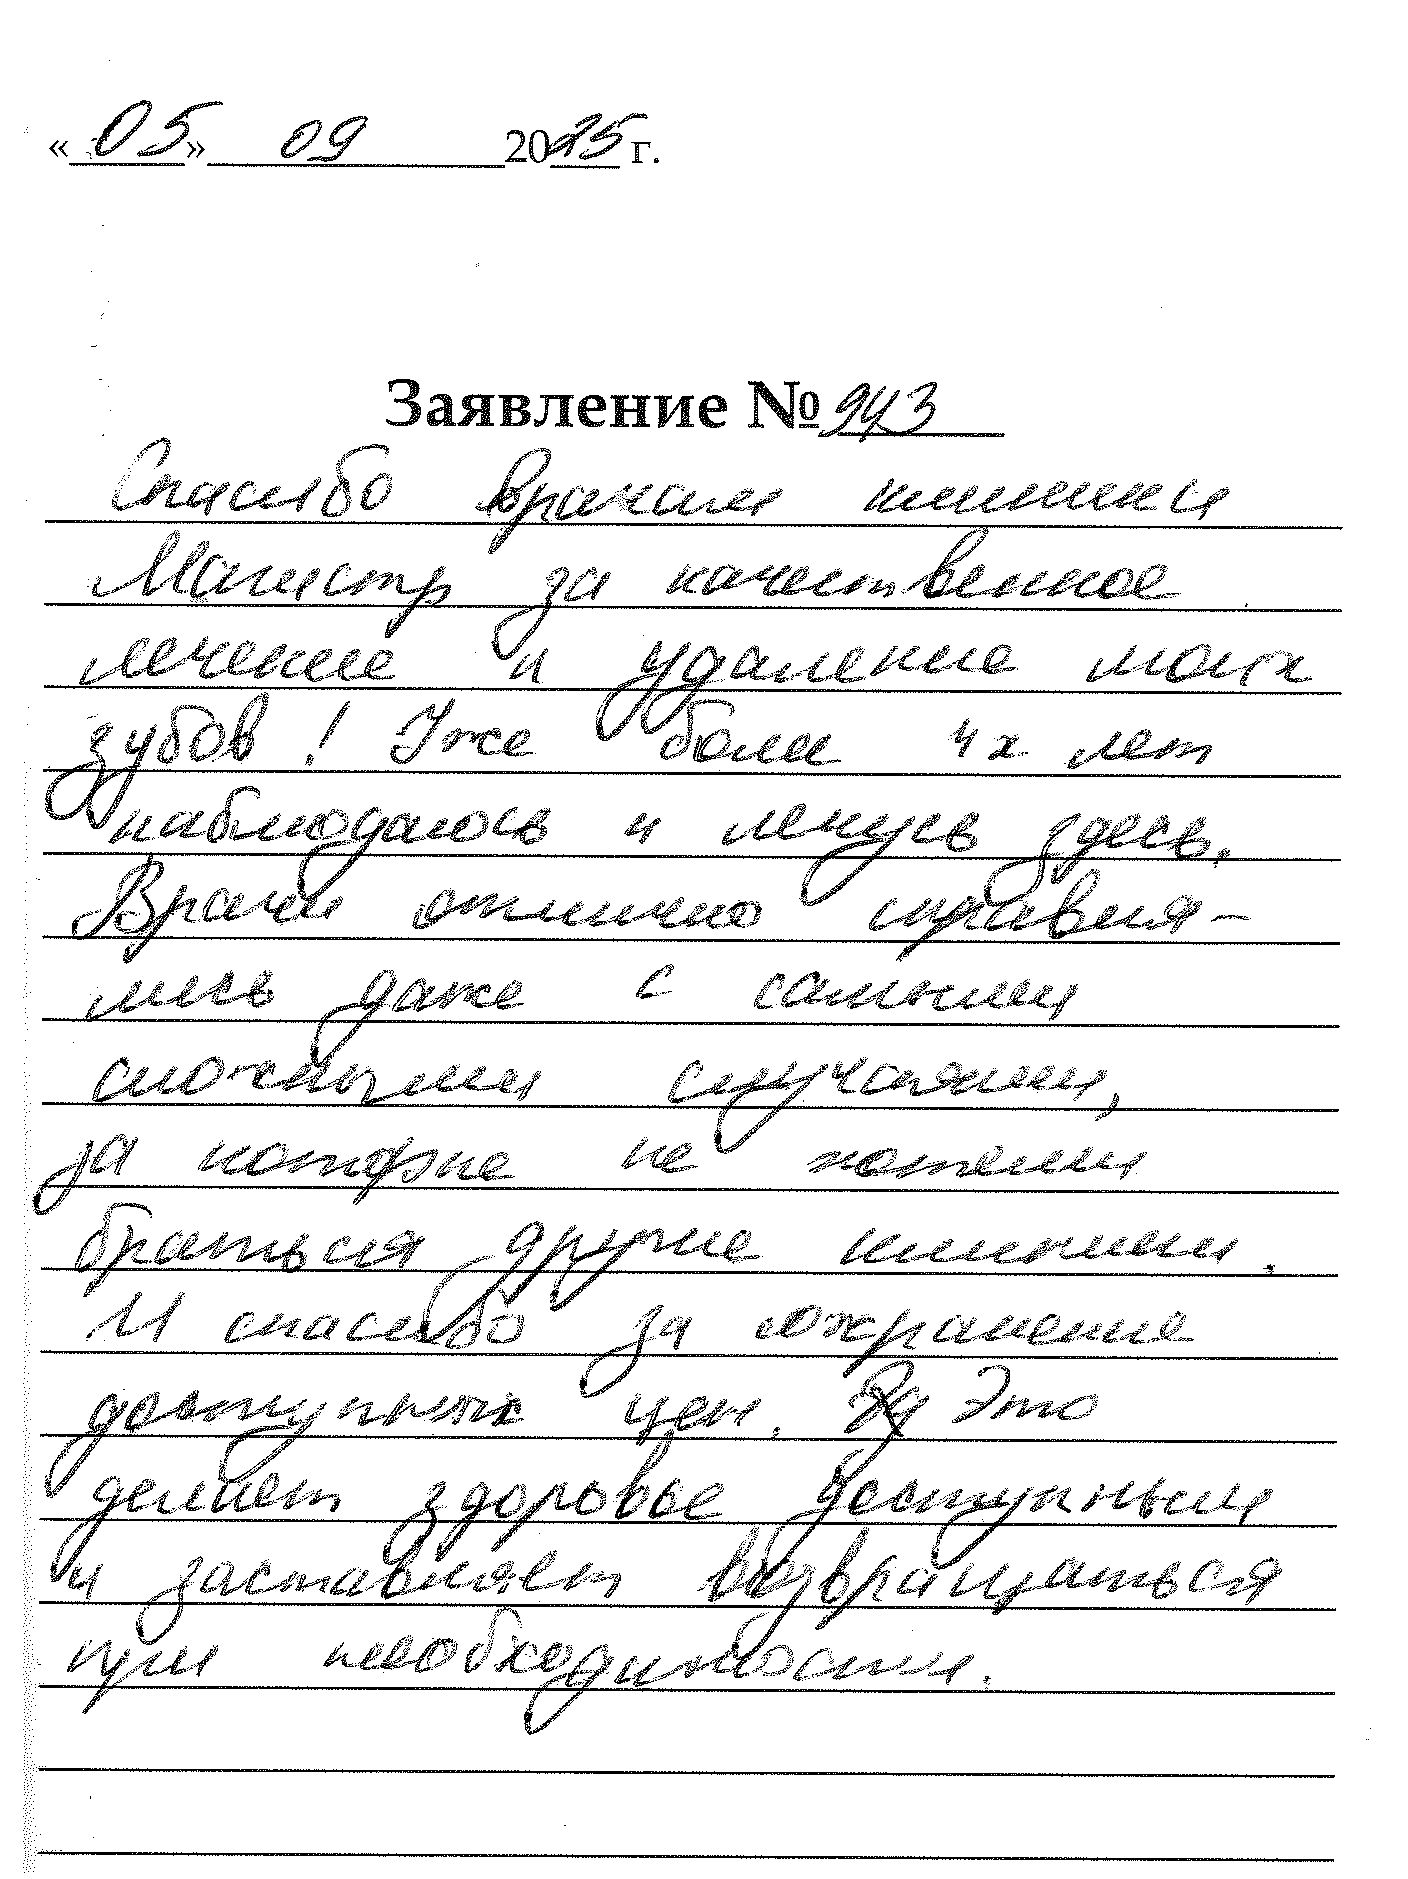 «05» 09 2025 г.
Заявление № 943
Спасибо врачам клиники
Магистр за качественное
лечение и удаление моих
зубов! Уже более 4х лет
наблюдаюсь и лечусь здесь.
Врачи отлично справля-
лись даже с самыми
сложными случаями,
за которые не хотели
браться другие клиники.
И спасибо за сохранение
доступных цен. Это
делает здоровье доступным
и заставляет возвращаться
при необходимости.